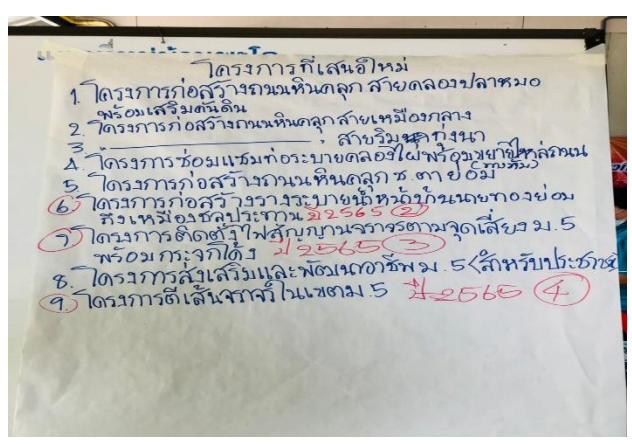 โครงการที่เสนอใหม่
1. โครงการก่อสร้างถนนหินคลุก สายคลองปลาหมอ
พร้อมเสริมคันดิน
2. โครงการก่อสร้างถนนหินคลุกสายเหมืองกลาง
3. " สายริมทุ่งนา
4. โครงการซ่อมแซมท่อระบายคลองไผ่พร้อมขยายไหล่ถนน
5. โครงการก่อสร้างถนนหินคลุก ซ.ตาย้อม
6. โครงการก่อสร้างรางระบายน้ำหน้าบ้านนายทองย่อม
ถึงเหมืองชลประทาน ปี 2565 (2)
7. โครงการติดตั้งไฟสัญญานจราจรตามจุดเสี่ยง ม.5
พร้อมกระจกโค้ง ปี 2565 (3)
8. โครงการส่งเสริมและพัฒนาอาชีพ ม.5 (สำหรับประชาชน)
9. โครงการตีเส้นจราจรในเขต ม.5 ปี 2565 (4)